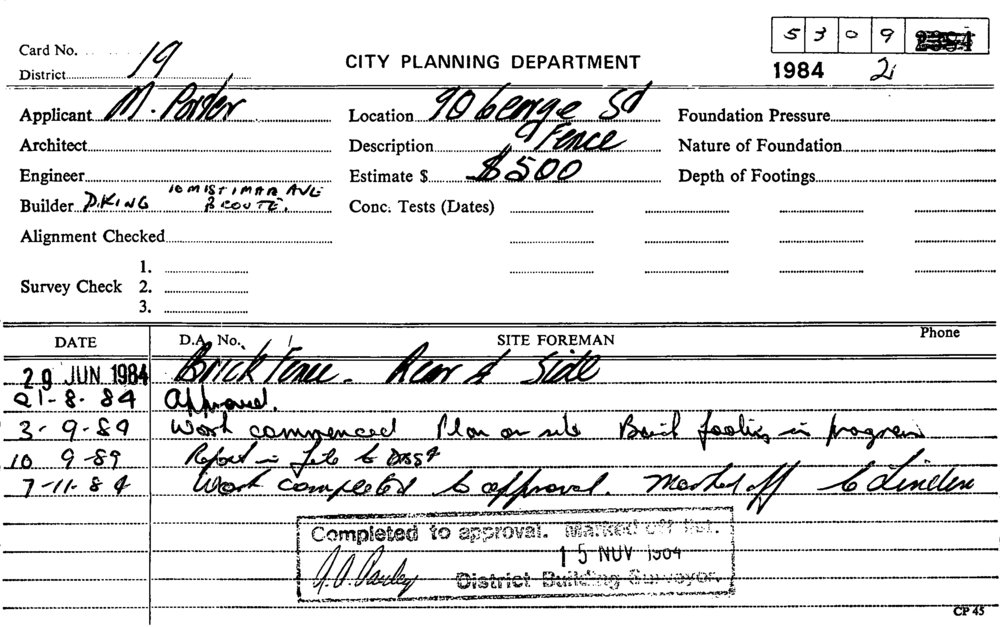 5 3 0 9
Card No. 19
District
CITY PLANNING DEPARTMENT
1984 2
Applicant M. Porter
Location 90 George St
Foundation Pressure
Architect
Description Fence
Nature of Foundation
Engineer
Estimate $ $500
Depth of Footings
Builder D. KING 10 MISTIMAR AVE
Conc. Tests (Dates)
Alignment Checked
1.
Survey Check 2.
3.
DATE D.A. No. SITE FOREMAN Phone
29 JUN 1984 Brick Fence. Rear & Side
21-8-84 Approved.
3-9-84 Work commenced Plan on site Brick footing in progress
10 9-89 Report in file to
7-11-84 Work completed to approval. Marked off
Completed to approval. Marked off list.
15 NOV 1984
District Building Surveyor.
CP 45